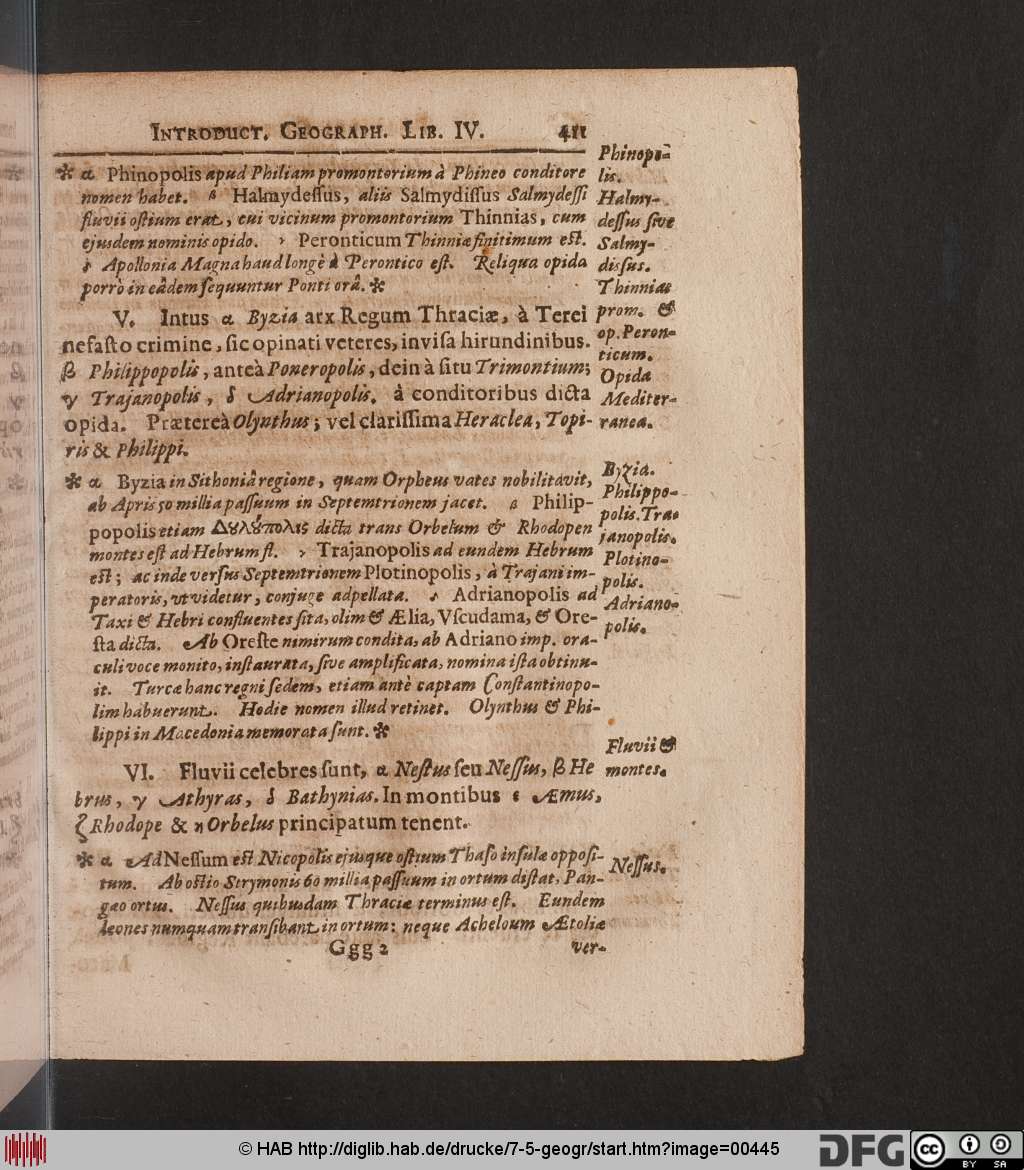 INTRODUCT. GEOGRAPH. LIB. IV. 411
* α Phinopolis apud Philiam promontorium à Phineo conditore
nomen habet. β Halmydeſſus, aliis Salmydiſſus Salmydeſſi
fluvii oſtium erat, cui vicinum promontorium Thinnias, cum
ejusdem nominis opido. γ Peronticum Thinniæ finitimum eſt.
δ Apollonia Magna haud longè à Perontico eſt. Reliqua opida
porrò in eâdem ſequuntur Ponti orâ. *
V. Intus α Byzia arx Regum Thraciæ, à Terei
nefaſto crimine, ſic opinati veteres, inviſa hirundinibus.
β Philippopolis, anteà Poneropolis, dein à ſitu Trimontium;
γ Trajanopolis, δ Adrianopolis, à conditoribus dicta
opida. Prætereà Olynthus; vel clariſſima Heraclea, Topi-
ris & Philippi.
* α Byzia in Sithoniâ regione, quam Orpheus vates nobilitavit,
ab Apris 50 millia paſſuum in Septemtrionem jacet. β Philip-
popolis etiam Δȣλȣ́πολις dicta trans Orbelum & Rhodopen
montes eſt ad Hebrum fl. γ Trajanopolis ad eundem Hebrum
eſt; ac inde verſus Septemtrionem Plotinopolis, à Trajani im-
peratoris, ut videtur, conjuge adpellata. δ Adrianopolis ad
Taxi & Hebri confluentes ſita, olim & Ælia, Vſcudama, & Ore-
ſta dicta. Ab Oreſte nimirum condita, ab Adriano imp. ora-
culi voce monito, inſtaurata, ſive amplificata, nomina iſta obtinu-
it. Turcæ hanc regni ſedem, etiam antè captam Conſtantinopo-
lim habuerunt. Hodie nomen illud retinet. Olynthus & Phi-
lippi in Macedonia memorata ſunt. *
VI. Fluvii celebres ſunt, α Neſtus ſeu Neſſus, β He
brus, γ Athyras, δ Bathynias. In montibus ε Æmus,
ζ Rhodope & η Orbelus principatum tenent.
* α Ad Neſſum eſt Nicopolis ejusque oſtium Thaſo inſulæ oppoſi-
tum. Ab oſtio Strymonis 60 millia paſſuum in ortum diſtat, Pan-
gæo ortus. Neſſus quibusdam Thraciæ terminus eſt. Eundem
leones numquam tranſibant in ortum: neque Acheloum Ætoliæ
Ggg 2 ver-
Phinopo-
lis.
Halmy-
deſſus ſive
Salmy-
diſſus.
Thinnias
prom. &
op. Peron-
ticum.
Opida
Mediter-
ranea.
Byzia.
Philippo-
polis. Tra-
janopolis.
Plotino-
polis.
Adriano-
polis.
Fluvii &
montes.
Neſſus.
© HAB http://diglib.hab.de/drucke/7-5-geogr/start.htm?image=00445
DFG
cc
BY SA